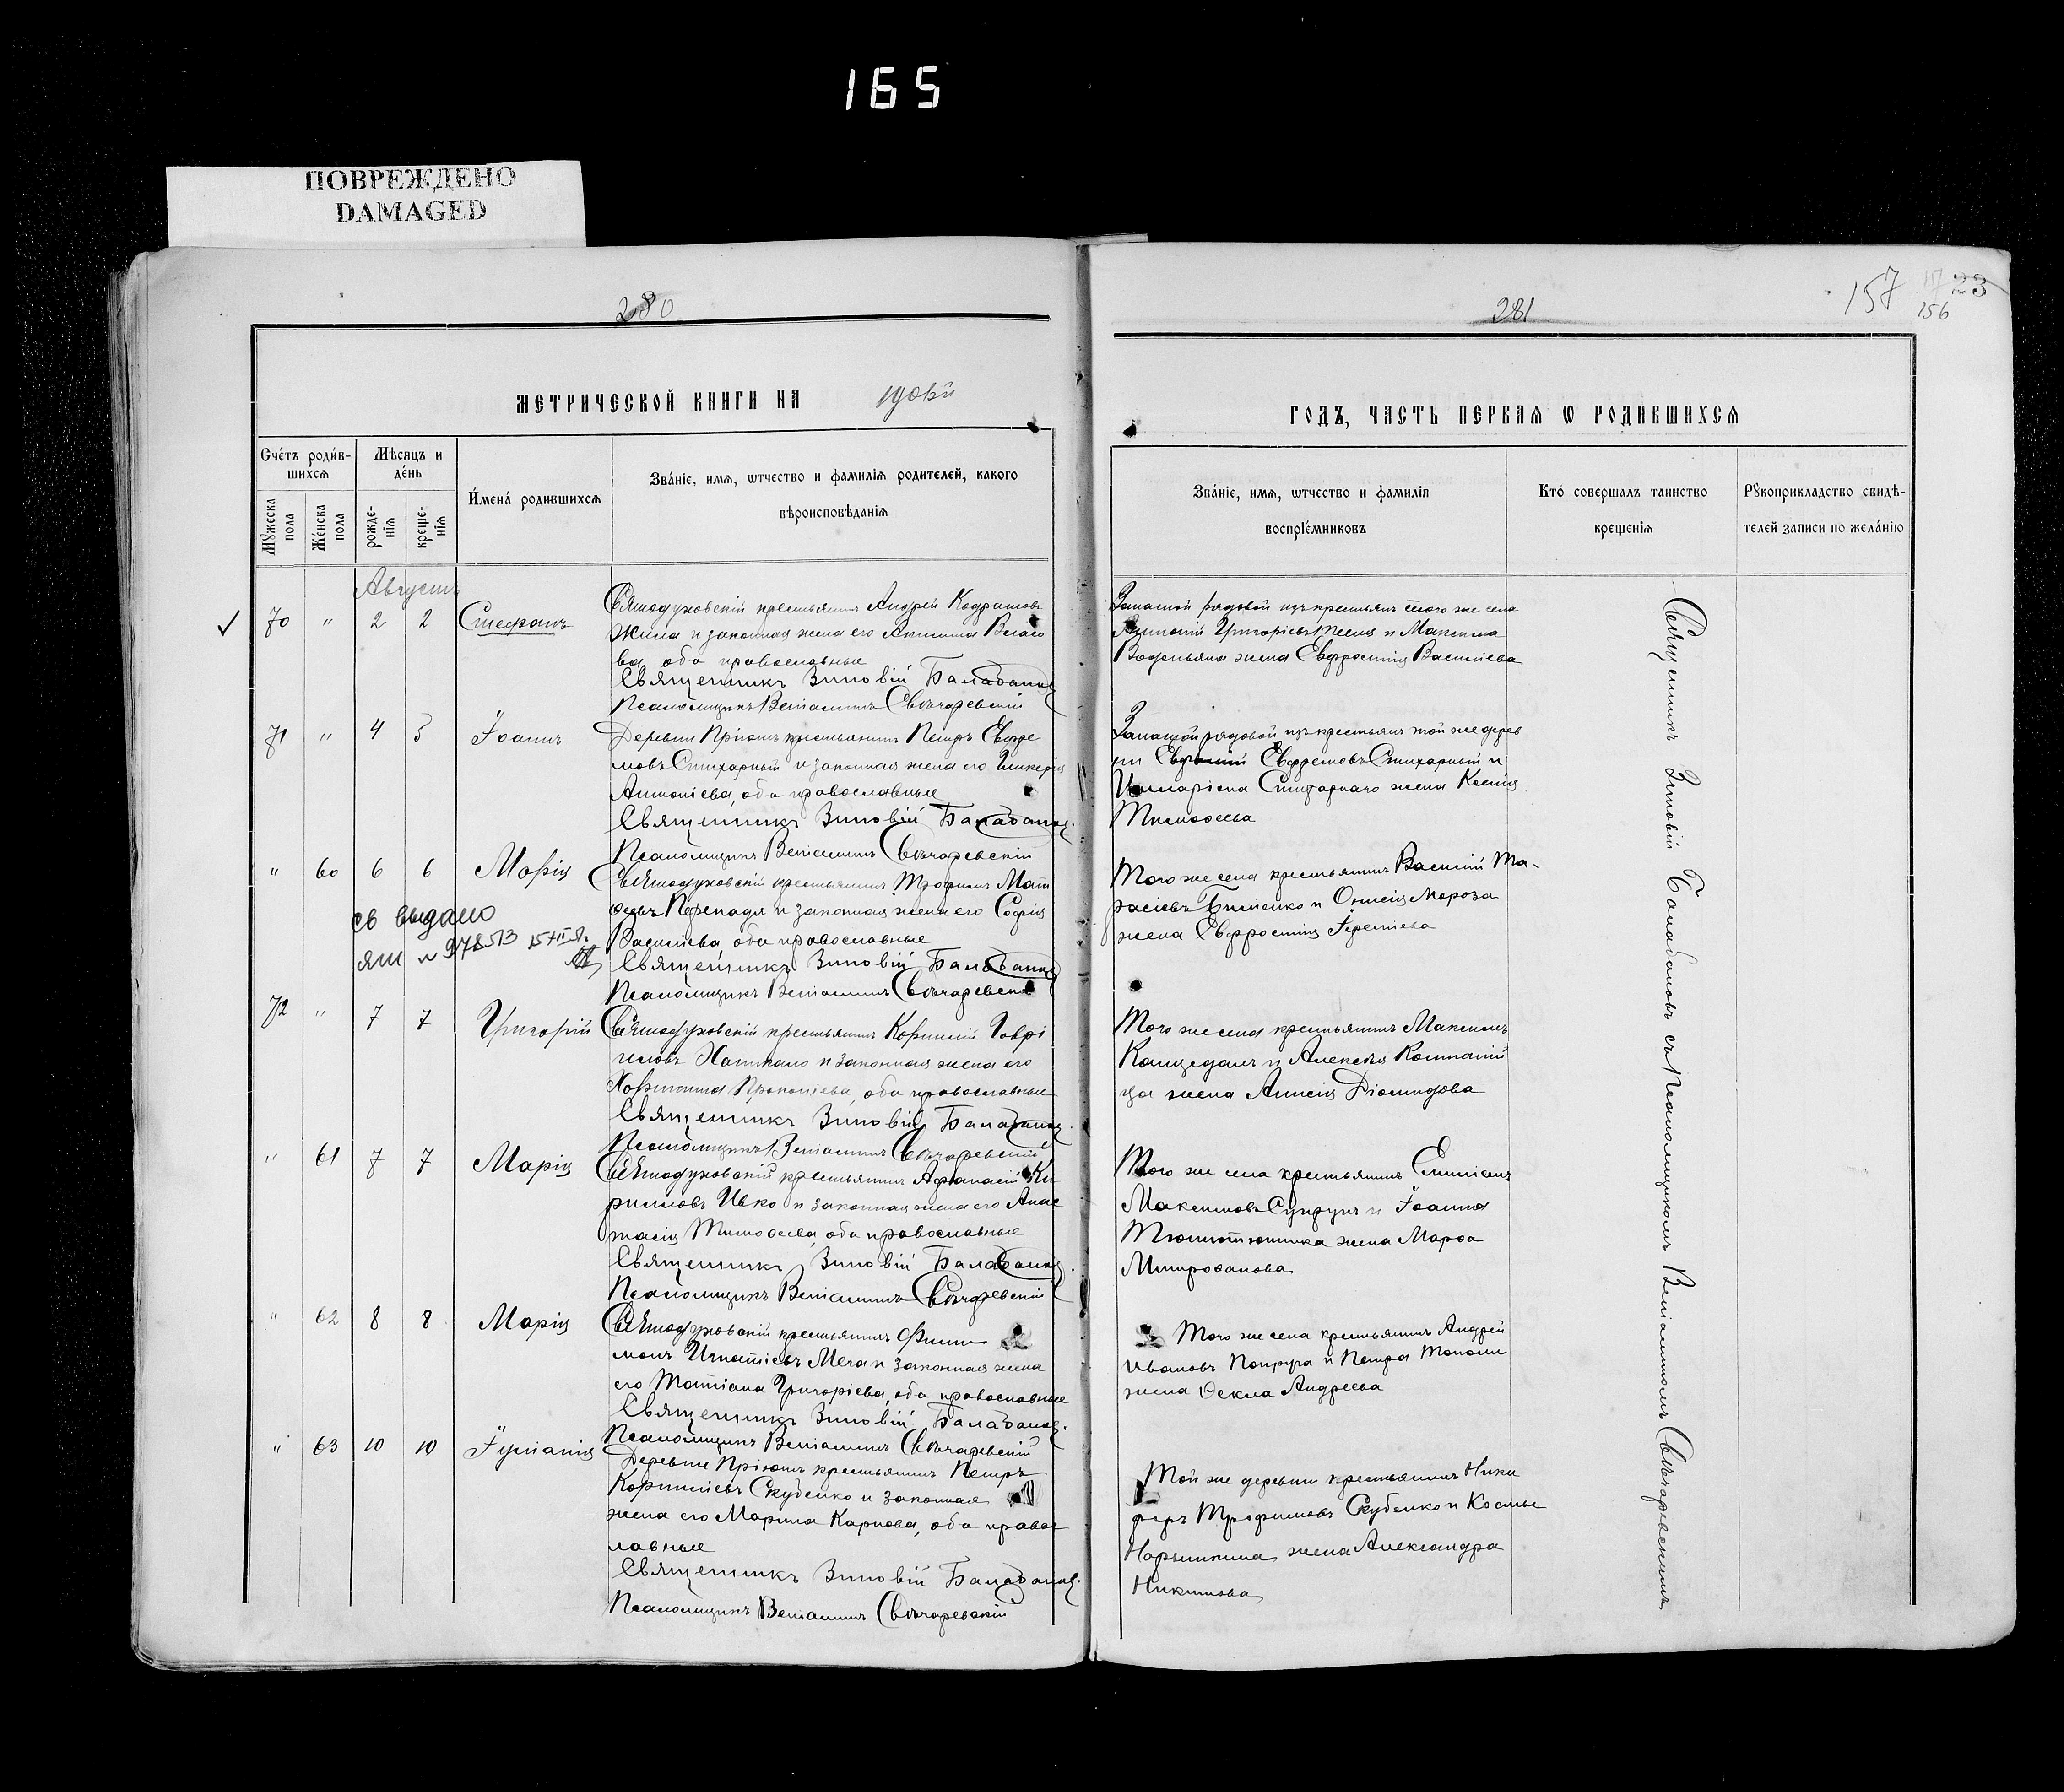 165
ПОВРЕЖДЕНО
DAMAGED
280
МЕТРИЧЕСКОЙ КНИГИ НА
Счéтъ роди́в-
шихсѧ
Мѣсѧцъ и
де́нь
Мꙋжеска
пола
Же́нска
пола
рожде-
нїѧ
креще-
нїѧ
И҆мена́ родившихсѧ
Зва́нїе, имѧ, ѡтчество и фамилїѧ родителей, какого
вѣроисповѣданїѧ
Августъ
70 " 2 2 Стефанъ
Святодуховскій крестьянинъ Андрей
и законная жена его
оба православные
Священникъ Зиновій Балабановъ
Псаломщикъ Веніаминъ Свѣчаревскій
71 " 4 5 Іоаннъ
Деревни Пріютъ крестьянинъ Петръ Евфре
мовъ Стихарный и законная жена его Гликерія
Антоніева, оба православные
Священникъ Зиновій Балабановъ
Псаломщикъ Веніаминъ Свѣчаревскій
" 60 6 6 Марія
Святодуховскій крестьянинъ Трофимъ Мат
ѳеевъ и законная жена его Софія
Василіева, оба православные
Священникъ Зиновій Балабановъ
Псаломщикъ Веніаминъ Свѣчаревскій
св выдано
ЯШ № 978513
72 " 7 7 Григорій
Святодуховскій крестьянинъ Корнилій Гаврі
иловъ и законная жена его
Харитина Прокопіева, оба православные
Священникъ Зиновій Балабановъ
Псаломщикъ Веніаминъ Свѣчаревскій
" 61 7 7 Марія
Святодуховскій крестьянинъ Афанасій Ки
рилловъ Ивко и законная жена его Анас
тасія Тимоѳеева, оба православные
Священникъ Зиновій Балабановъ
Псаломщикъ Веніаминъ Свѣчаревскій
" 62 8 8 Марія
Святодуховскій крестьянинъ Фили
монъ Игнатіевъ Мега и законная жена
его Татіана Григоріева, оба православные
Священникъ Зиновій Балабановъ
Псаломщикъ Веніаминъ Свѣчаревскій
" 63 10 10 Іуліанія
Деревни Пріютъ крестьянинъ Петръ
Корниліевъ Скубенко и законная
жена его Марина Карпова, оба правос
лавные
Священникъ Зиновій Балабановъ
Псаломщикъ Веніаминъ Свѣчаревскій
281
157
17 23
156
ГОДЪ, ЧАСТЬ ПЕРВАѦ Ѡ РОДИВШИХСѦ
Зва́нїе, имѧ, ѡтчество и фамилїѧ
воспрїе́мниковъ
Кто́ совершалъ таинство
крещенїѧ
Рꙋкоприкладство свидѣ-
телей записи по жела́нїю
Запасной рядовой изъ крестьянъ того же села
Григоріевъ и Максима
жена Евфросинія Василіева
Запасной рядовой изъ крестьянъ той же дерев
ни Евфремовъ Стихарный и
Иллариона Стихарнаго жена Ксенія
Тимоѳеева
Того же села крестьянинъ Василій Та-
расіевъ Билленко и Онисія Мороза
жена Евфросинія Іереміева
Того же села крестьянинъ Максимъ
Кащеданъ и Алексѣя
жена Анисія Діомидова
Того же села крестьянинъ Емиліанъ
Максимовъ Супрунъ и Іоанна
Тютютюнника жена Марѳа
Митрофанова
Того же села крестьянинъ Андрей
Ивановъ Попруга и Петра
жена Ѳекла Андреева
Той же деревни крестьянинъ Ники
форъ Трофимовъ Скубенко и Космы
Нарыжнина жена Александра
Никитова
Священникъ Зиновій Балабановъ съ Псаломщикомъ Веніаминомъ Свѣчаревскимъ